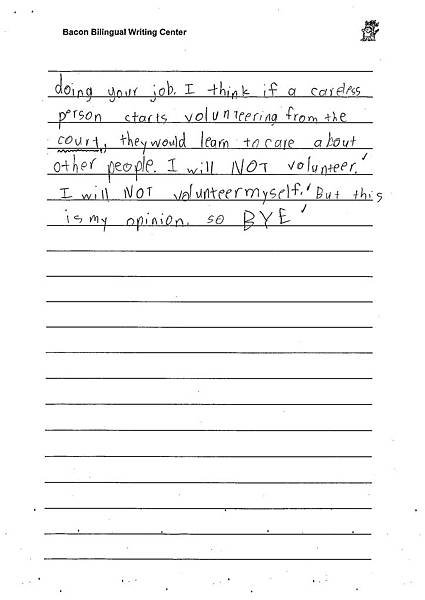 Bacon Bilingual Writing Center
doing your job. I think if a careless
person starts volunteering from the
court, they would learn to care about
other people. I will NOT volunteer!
I will NOT volunteer myself! But this
is my opinion. so BYE!